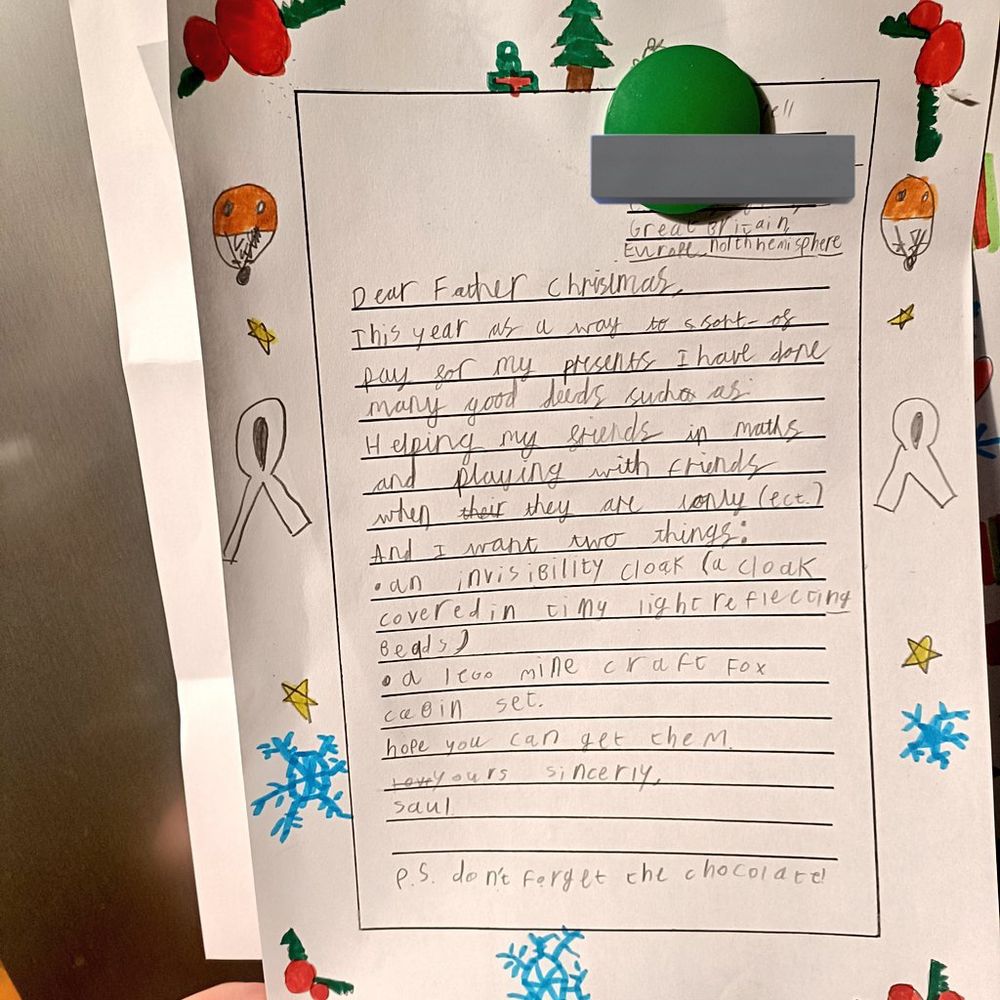 Great Britain,
Europe, north hemisphere
Dear Father Christmas,
This year as a way to ssort-of
pay for my presents I have done
many good deeds such as:
Helping my friends in maths
and playing with friends
when their they are lonly (ect.)
And I want two things:
• an invisibility cloak (a cloak
covered in tiny light reflecting
Beads)
• a lego minecraft Fox
caBin set.
hope you can get theM.
Love yours sincerly,
saul
P.S. don't forget the chocolate!